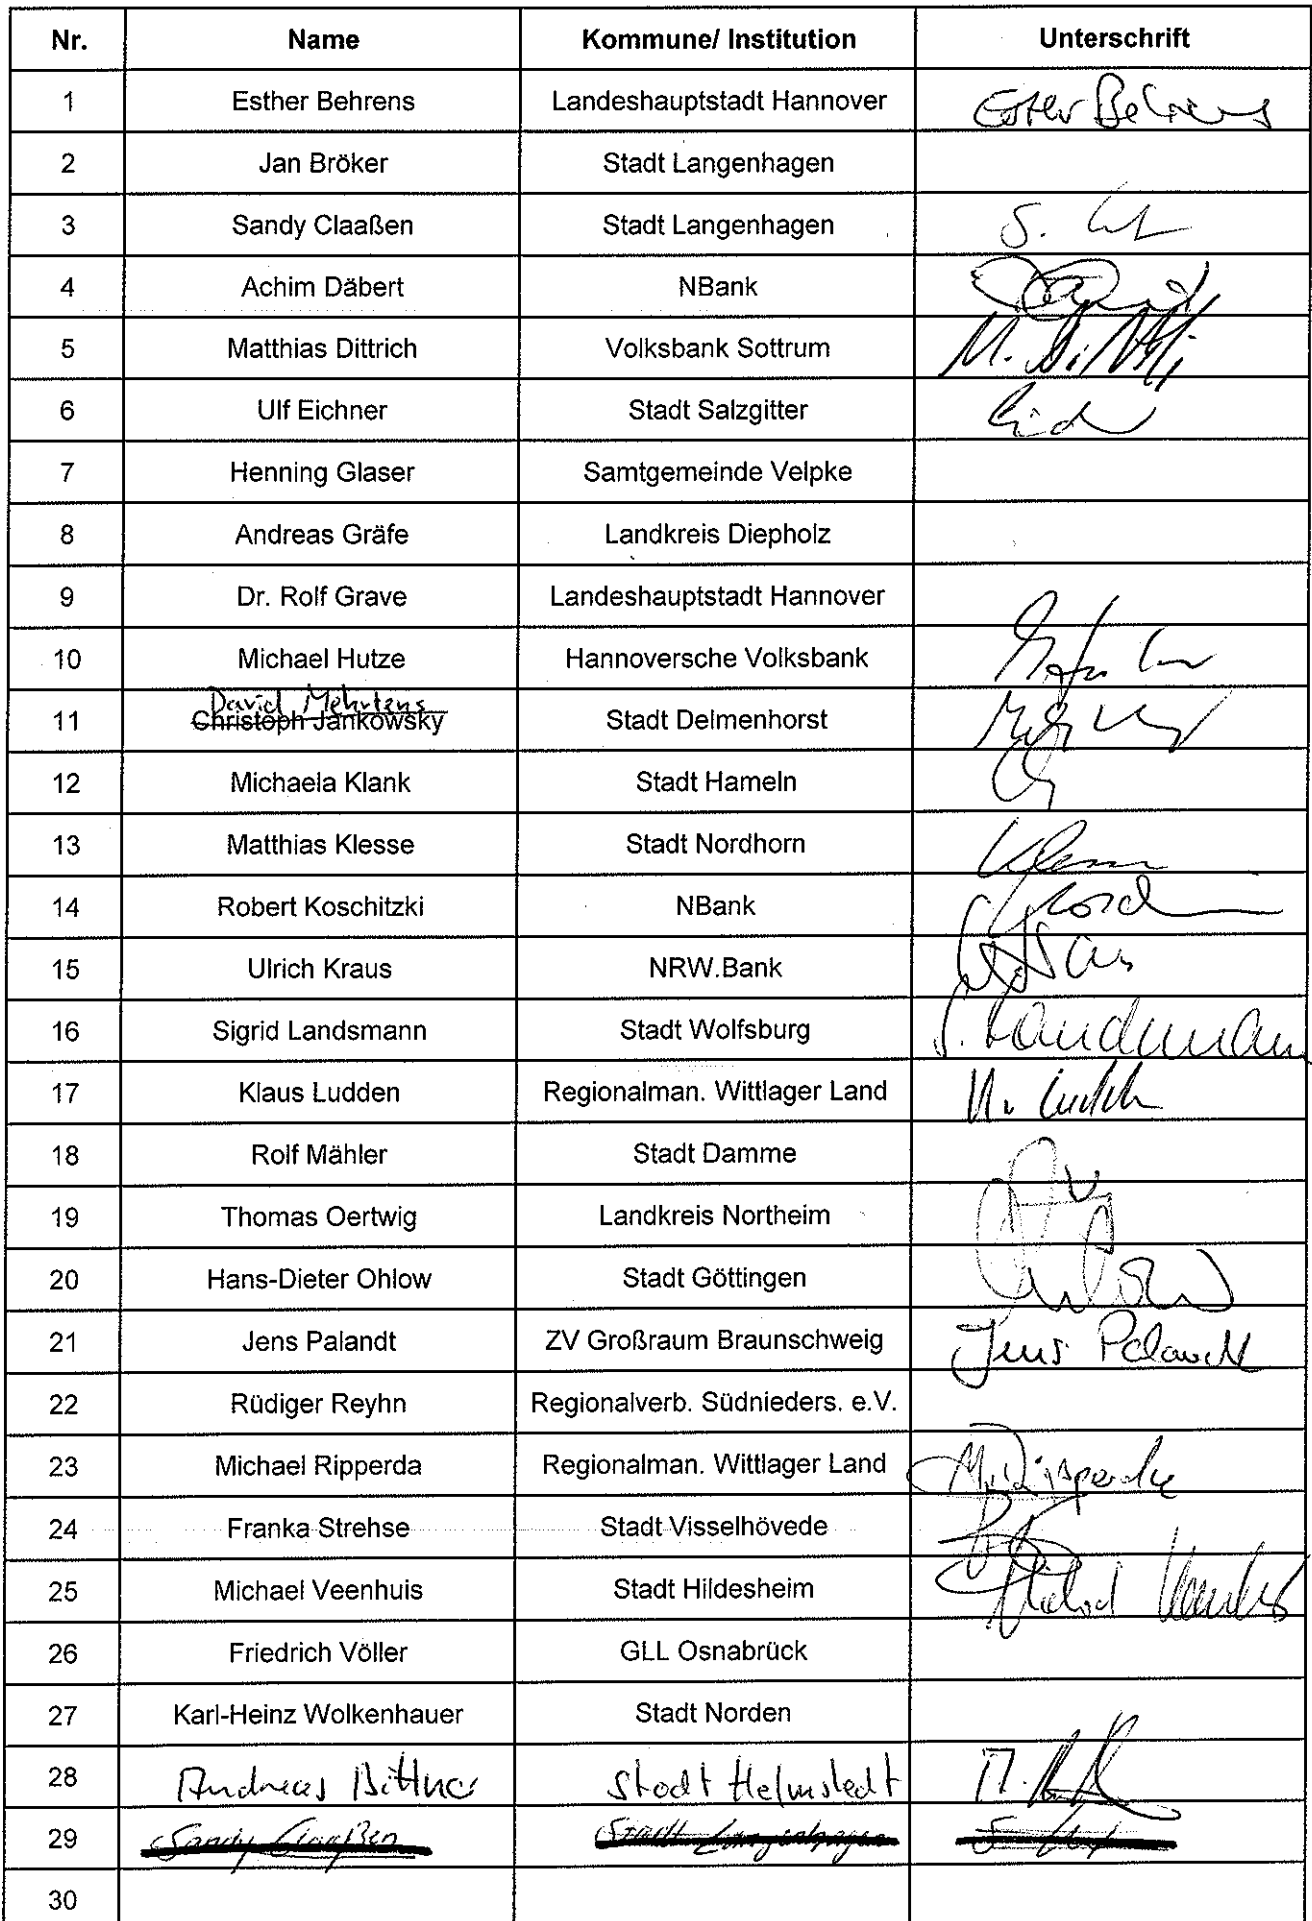 Nr. Name Kommune/ Institution Unterschrift
1 Esther Behrens Landeshauptstadt Hannover Esther Behrens
2 Jan Bröker Stadt Langenhagen
3 Sandy Claaßen Stadt Langenhagen S.
4 Achim Däbert NBank
5 Matthias Dittrich Volksbank Sottrum M.
6 Ulf Eichner Stadt Salzgitter
7 Henning Glaser Samtgemeinde Velpke
8 Andreas Gräfe Landkreis Diepholz
9 Dr. Rolf Grave Landeshauptstadt Hannover
10 Michael Hutze Hannoversche Volksbank
David Mehrtens
11 Christoph Jankowsky Stadt Delmenhorst
12 Michaela Klank Stadt Hameln
13 Matthias Klesse Stadt Nordhorn
14 Robert Koschitzki NBank
15 Ulrich Kraus NRW.Bank
16 Sigrid Landsmann Stadt Wolfsburg S. Landsmann
17 Klaus Ludden Regionalman. Wittlager Land K. Ludden
18 Rolf Mähler Stadt Damme
19 Thomas Oertwig Landkreis Northeim
20 Hans-Dieter Ohlow Stadt Göttingen
21 Jens Palandt ZV Großraum Braunschweig Jens Palandt
22 Rüdiger Reyhn Regionalverb. Südnieders. e.V.
23 Michael Ripperda Regionalman. Wittlager Land M. Ripperda
24 Franka Strehse Stadt Visselhövede
25 Michael Veenhuis Stadt Hildesheim Michael Veenhuis
26 Friedrich Völler GLL Osnabrück
27 Karl-Heinz Wolkenhauer Stadt Norden
28 Andreas Bittner Stadt Helmstedt
29 Sandy Claaßen Stadt Langenhagen
30